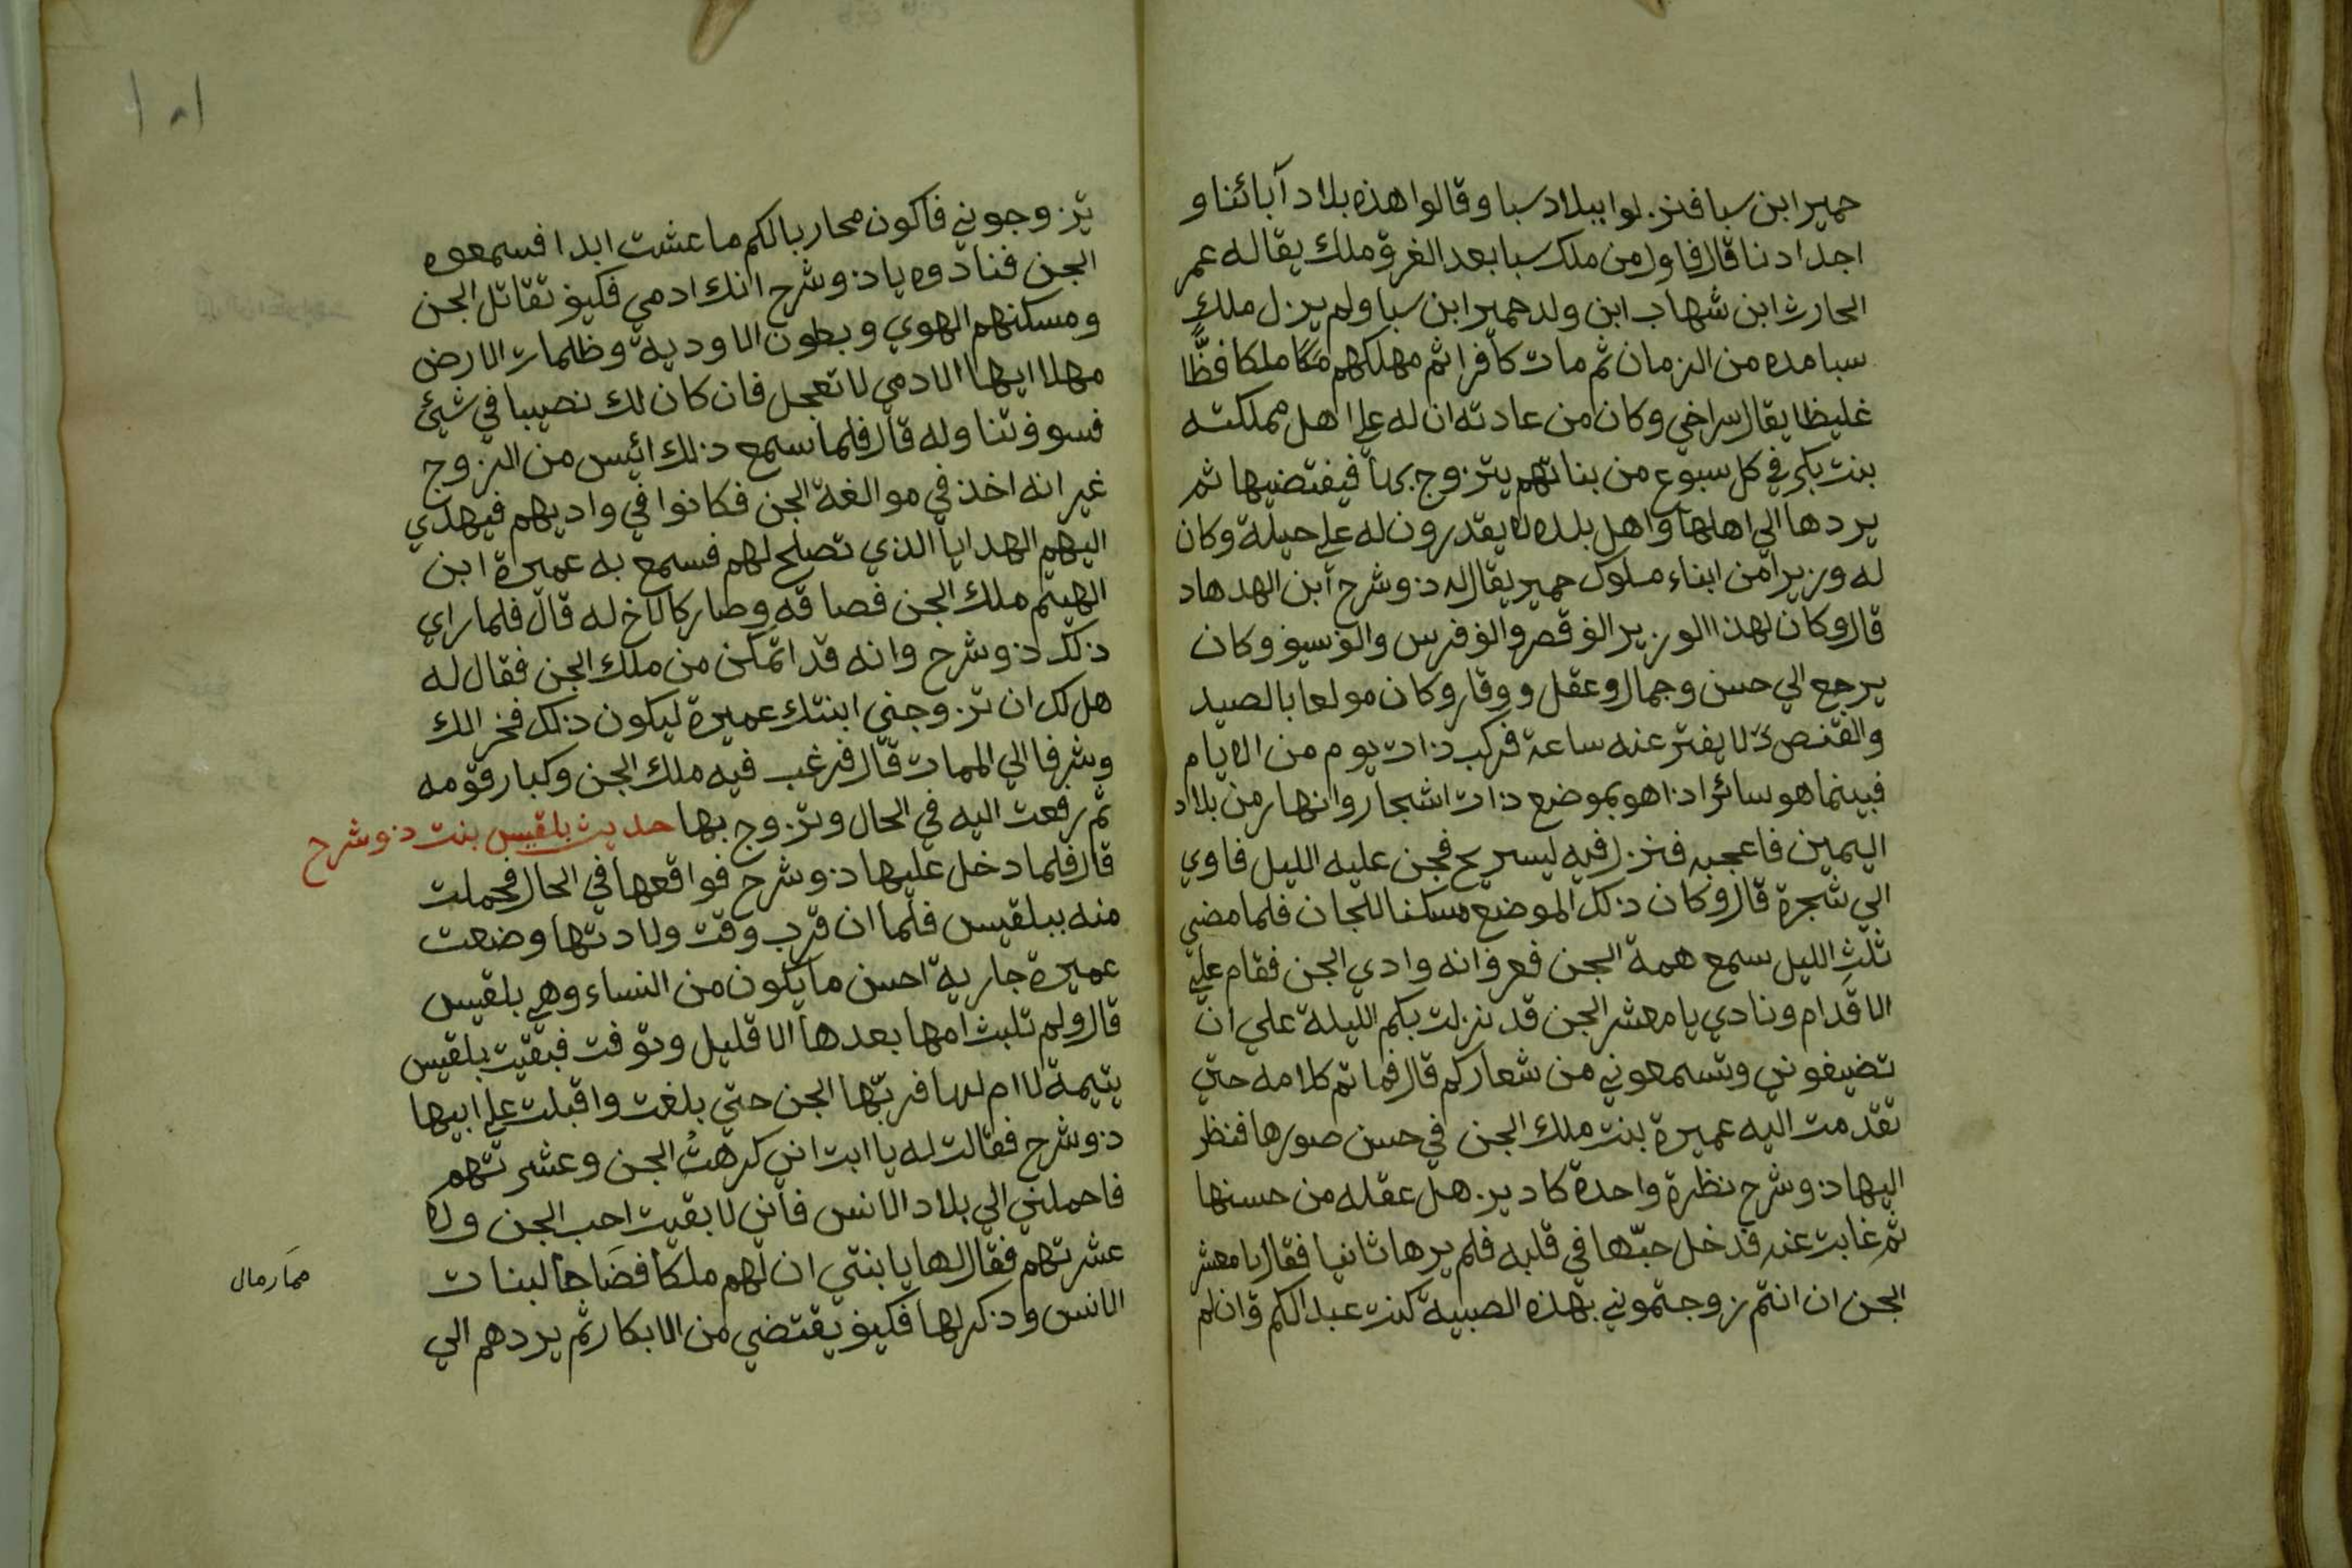 حمير ابن سبا فنزلوا ببلاد سبا وقالوا هذه بلاد آبائنا و
اجدادنا قال فاول من ملك سبا بعد الغرق ملك يقال له عمر
الحارث ابن شهاب ابن ولد حمير ابن سبا ولم يزل ملك
سبا مده من الزمان ثم مات كافرا ثم مهلكهم ملكا فظًّا
غليظا يقال سراخي وكان من عادته ان له علي اهل مملكته
بنت بكر في كل سبوع من بناتهم يتزوج بها فيفتضيها ثم
يردها الي اهلها واهل بلده لا يقدرون له علي حيلة وكان
له وزيرا من ابناء ملوك حمير يقال له ذو شرح ابن الهدهاد
قال وكان لهذا الوزير الف قصر والف فرس والف سيف وكان
يرجع الي حسن وجمال وعقل ووقار وكان مولعا بالصيد
والقنص لا يفتر عنه ساعة فركب ذات يوم من الايام
فبينما هو سائر اذا هو بموضع ذات اشجار وانهار من بلاد
اليمين فاعجبه فنزل فيه ليسريح فجن عليه الليل فاوي
الي شجرة قال وكان ذلك الموضع مسكنا للجان فلما مضي
ثلث الليل سمع همة الجن فعرف انه وادي الجن فقام علي
الاقدام ونادي يا معشر الجن قد نزلت بكم الليلة علي ان
تضيفوني وتسمعوني من شعاركم قال فما تم كلامه حتي
تقدمت اليه عميرة بنت ملك الجن في حسن صورها فنظر
اليها ذو شرح نظرة واحدة كاد يزهل عقله من حسنها
ثم غابت عنه فدخل حبّها في قلبه فلم يرها ثانيا فقال يا معشر
الجن ان انتم زوجتموني بهذه الصبية كنت عبدا لكم وان لم
تزوجوني فاكون محاربا لكم ما عشت ابدا فسمعوه
الجن فنادوه يا ذو شرح انك ادمي فكيف تقاتل الجن
ومسكنهم الهوي وبطون الاودية وظلمات الارض
مهلا ايها الادمي لا تعجل فان كان لك نصيبا في شيئ
فسوف تناوله قال فلما سمع ذلك ائيس من الزوج
غير انه اخذ في موالغة الجن فكانوا في واديهم فيهدي
اليهم الهدايا الذي تصلح لهم فسمع به عميرة ابن
الهيثم ملك الجن فصاقه وصار كالاخ له قال فلما راي
ذلك ذو شرح وانه قد اتمكن من ملك الجن فقال له
هل لك ان تزوجني ابنتك عميرة ليكون ذلك فخر الك
وشرفا الي الممات قال فرغب فيه ملك الجن وكبار قومه
ثم رفعت اليه في الحال وتزوج بها حديث بلقيس بنت ذو شرح
قال فلما دخل عليها ذو شرح فواقعها في الحال فحملت
منه ببلقيس فلما ان قرب وقت ولادتها وضعت
عميرة جارية احسن ما يكون من النساء وهي بلقيس
قال ولم تلبث امها بعدها الا قليل وتوفت فبقيت بلقيس
يتيمة لا ام لها فربّها الجن حتي بلغت واقبلت علي ابيها
ذو شرح فقالت له يا ابت اني كرهتُ الجن وعشرتهم
فاحملني الي بلاد الانس فاني لا بقيت احب الجن ولا
عشرتهم فقال لها يا بنتي ان لهم ملكا فضاحا لبنات
الانس وذكر لها فكيف يفتضي من الابكار ثم يردهم الي